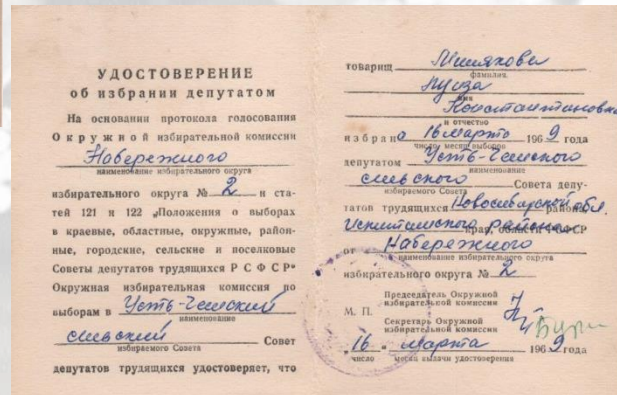 УДОСТОВЕРЕНИЕ
об избрании депутатом
На основании протокола голосования
Окружной избирательной комиссии
Набережного
наименование избирательного округа
избирательного округа № 2 и ста-
тей 121 и 122 „Положения о выборах
в краевые, областные, окружные, район-
ные, городские, сельские и поселковые
Советы депутатов трудящихся РСФСР"
Окружная избирательная комиссия по
выборам в Усть-Чемский
наименование
сельский Совет
избираемого Совета
депутатов трудящихся удостоверяет, что
товарищ
фамилия
Луиза
имя
Константиновна
и отчество
избрана 16 марта 1969 года
число месяц выборов
депутатом Усть-Чемского
наименование
сельского Совета депу-
избираемого Совета
татов трудящихся Новосибирской обл.
Искитимского района
край, области РСФСР
от Набережного
наименование избирательного округа
избирательного округа № 2
Председатель Окружной
избирательной комиссии
М. П.
Секретарь Окружной
избирательной комиссии
„16" марта 1969 года
число месяц выдачи удостоверения